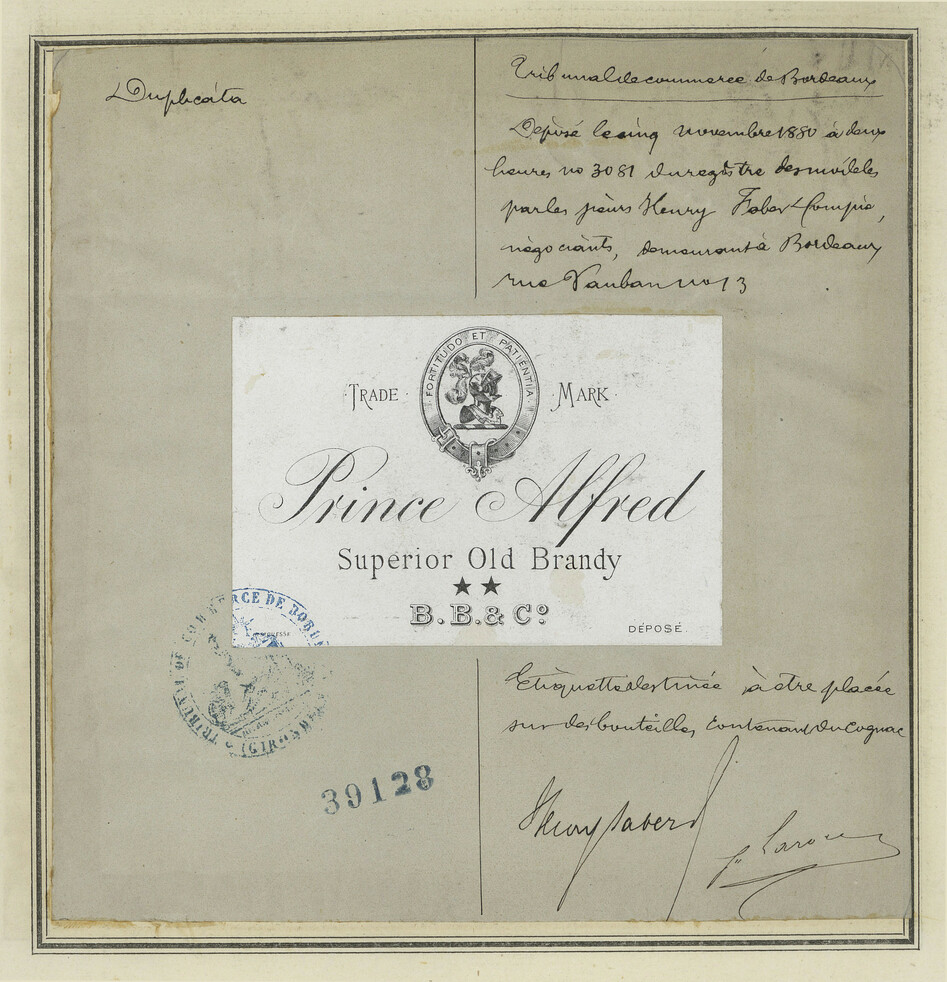 Duplicáta
Tribunal de commerce de Bordeaux
Déposé le cinq novembre 1880 à deux
heures no 3081 du registre des modèles
par les sieurs Henry Faber & Compie,
négociants, demeurant à Bordeaux
rue Vauban no 13
FORTITUDO ET PATIENTIA
TRADE MARK
Prince Alfred
Superior Old Brandy
B.B.& Co.
DÉPOSÉ
TRIBUNAL DE COMMERCE DE BORDEAUX
(GIRONDE)
Etiquette destinée à être placée
sur des bouteilles contenant du Cognac
39128
Henry Faber